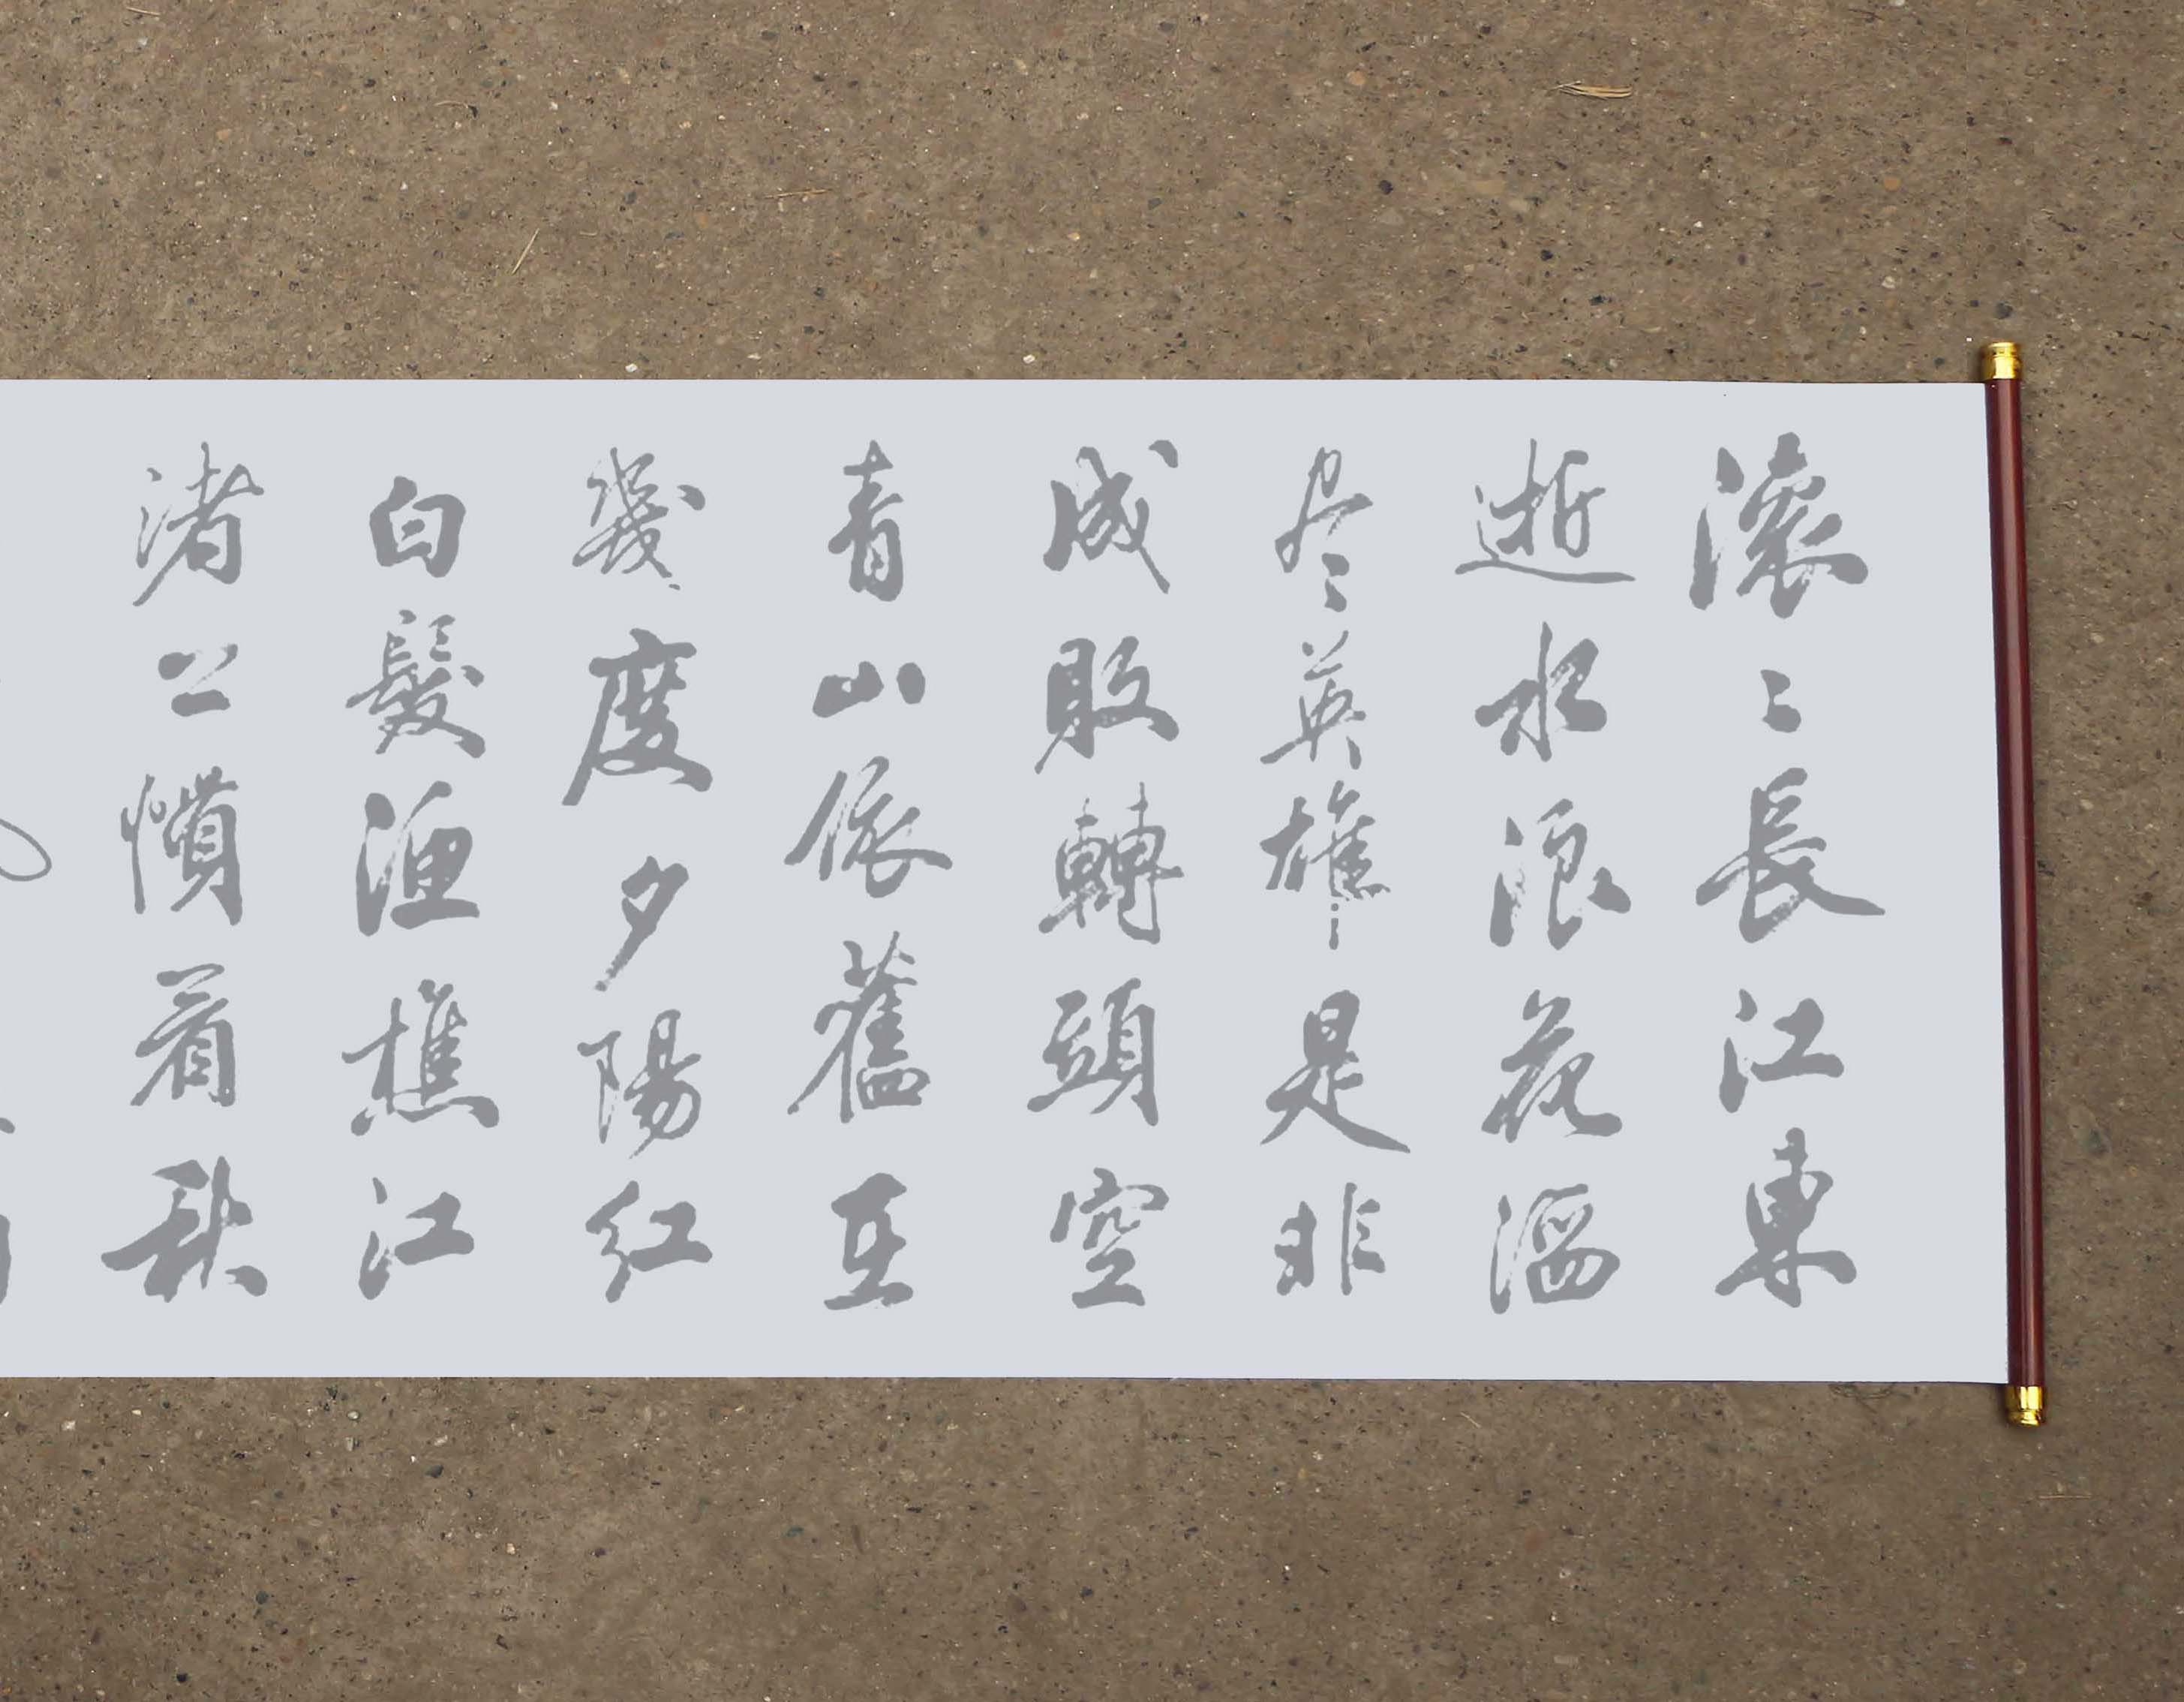 滚〻長江東
逝水浪花淘
尽英雄是非
成敗轉頭空
青山依舊在
幾度夕陽紅
白髮漁樵江
渚上慣看秋